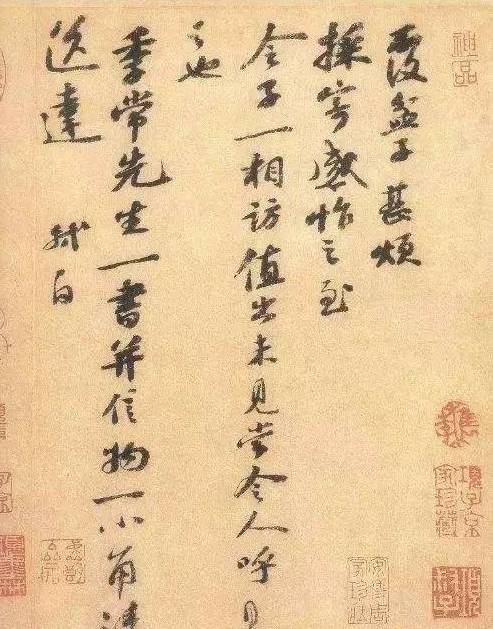 覆盆子甚烦
采寄感怍之至
令子一相访值出未见当令人呼见
之也
季常先生一书并信物一小角请
送达
轼白
神品